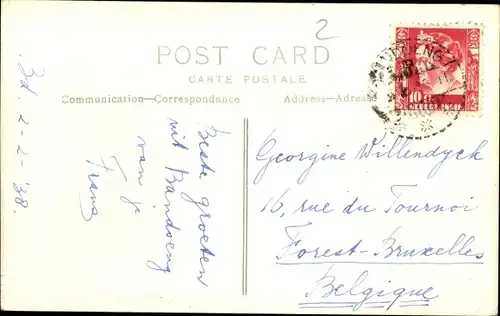 2
POST CARD
CARTE POSTALE
Communication—Correspondance
Address—Adresse
Bd. 2-2-'38.
Beste groeten
uit Bandoeng
van je
Frans
10 ct
NEDERL. INDIË
Georgine Willendyck
16, rue du Tournoi
Forest-Bruxelles
Belgique